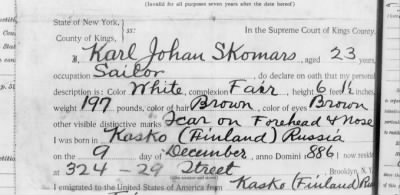 (Invalid for all purposes seven years after the date hereof)
State of New York,
In the Supreme Court of Kings County.
County of Kings, ss:
I, Karl Johan Skomars, aged 23 years,
occupation Sailor, do declare on oath that my personal
description is: Color White, complexion Fair, height 6 feet 1½ inches,
weight 197 pounds, color of hair Brown, color of eyes Brown
other visible distinctive marks Scar on Forehead & Nose
I was born in Kasko (Finland) Russia
on the 9 day of December, anno Domini 1886; I now reside
at 324 - 29 Street Brooklyn, N.Y.
I emigrated to the United States of America from Kasko (Finland) Ru